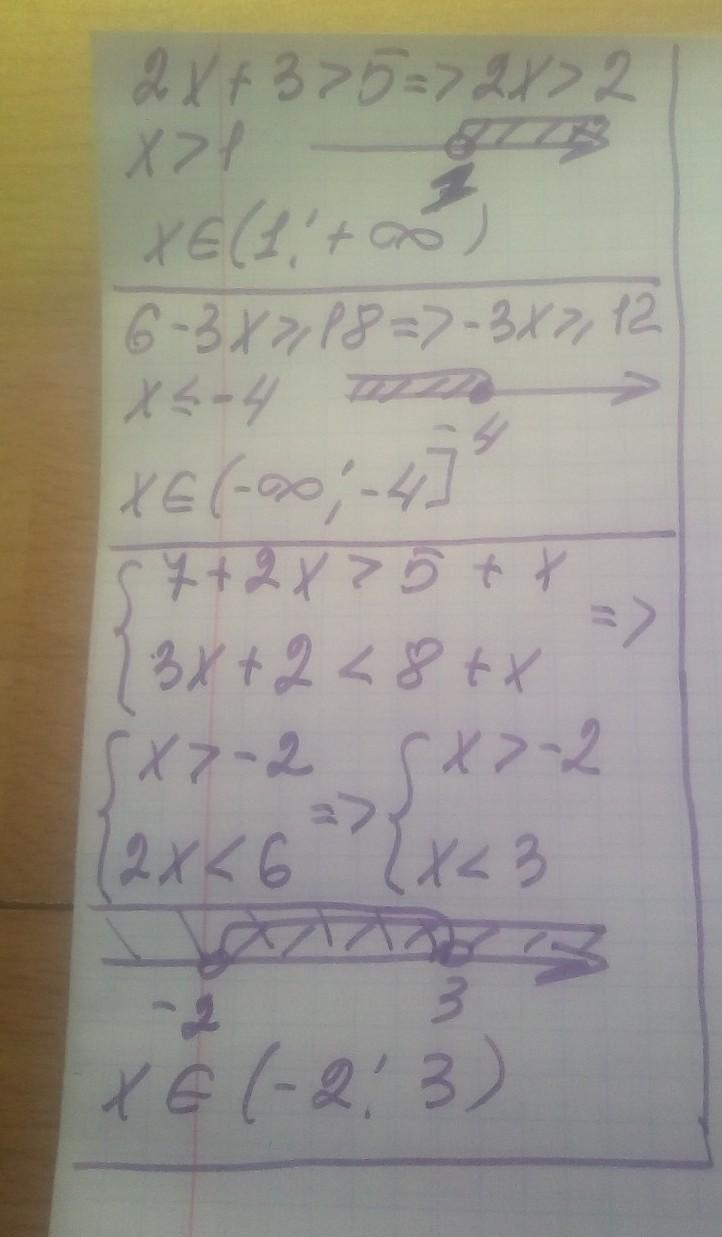 2x + 3 > 5 => 2x > 2
x > 1
1
x ∈ (1; +∞)
6 - 3x ≥ 18 => -3x ≥ 12
x ≤ -4
-4
x ∈ (-∞; -4]
{ 7 + 2x > 5 + x
{ 3x + 2 < 8 + x =>
{ x > -2 { x > -2
{ 2x < 6 => { x < 3
-2 3
x ∈ (-2; 3)